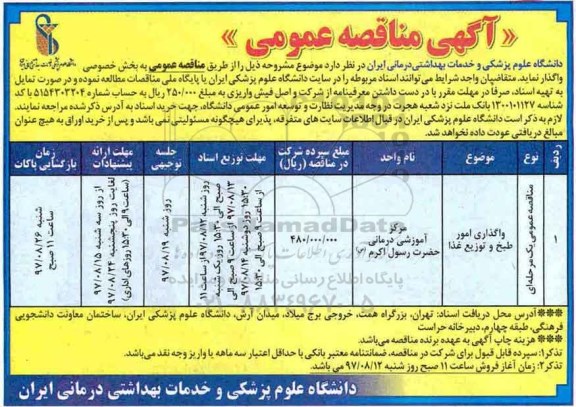 « آگهی مناقصه عمومی »
دانشگاه علوم پزشکی و خدمات بهداشتی‌درمانی ایران در نظر دارد موضوع مشروحه ذیل را از طریق مناقصه عمومی به بخش خصوصی
واگذار نماید. متقاضیان واجد شرایط می‌توانند اسناد مربوطه را در سایت دانشگاه علوم پزشکی ایران یا پایگاه ملی مناقصات مطالعه نموده و در صورت تمایل
به تهیه اسناد، صرفاً در مهلت مقرر با در دست داشتن معرفینامه از شرکت و اصل فیش واریزی به مبلغ ۲۵۰/۰۰۰ ریال به حساب شماره ۵۱۵۴۳۰۳۳۰۴ با کد
شناسه ۱۳۰۰۱۰۱۱۲۷ بانک ملت نزد شعبه هجرت در وجه مدیریت نظارت و توسعه امور عمومی دانشگاه، جهت خرید اسناد به آدرس ذکرشده مراجعه نمایند.
لازم به ذکر است دانشگاه علوم پزشکی ایران در قبال اطلاعات سایت های متفرقه، پذیرای هیچگونه مسئولیتی نمی باشد و پس از خرید اوراق به هیچ عنوان
مبالغ دریافتی عودت داده نخواهد شد.
ردیف
نوع
موضوع
نام واحد
مبلغ سپرده شرکت در مناقصه (ریال)
مهلت توزیع اسناد
جلسه توجیهی
مهلت ارائه پیشنهادات
زمان بازگشایی پاکات
۱
مناقصه عمومی یک مرحله‌ای
واگذاری امور طبخ و توزیع غذا
مرکز آموزشی درمانی حضرت رسول اکرم (ص)
۴۸۰/۰۰۰/۰۰۰
روز شنبه ۹۷/۰۸/۱۲ از ساعت ۱۱
صبح الی ۱۵:۳۰ روز یک شنبه
۹۷/۰۸/۱۳ از ساعت ۹ صبح الی
۱۵:۳۰ روز دوشنبه ۹۷/۰۸/۱۴
از ساعت ۹ صبح الی ۱۵:۳۰
روز شنبه ۹۷/۰۸/۱۹
از روز سه شنبه ۹۷/۰۸/۱۵
لغایت روز پنجشنبه ۹۷/۰۸/۲۴
(ساعت ۹ الی ۱۵:۳۰ روزهای اداری)
شنبه ۹۷/۰۸/۲۶
ساعت ۱۱ صبح
***آدرس محل دریافت اسناد: تهران، بزرگراه همت، خروجی برج میلاد، میدان آرش، دانشگاه علوم پزشکی ایران، ساختمان معاونت دانشجویی
فرهنگی، طبقه چهارم، دبیرخانه حراست
*** هزینه چاپ آگهی به عهده برنده مناقصه می‌باشد.
تذکر۱: سپرده قابل قبول برای شرکت در مناقصه، ضمانتنامه معتبر بانکی با حداقل اعتبار سه ماهه یا واریز وجه نقد می‌باشد.
تذکر۲: زمان آغاز فروش ساعت ۱۱ صبح روز شنبه ۹۷/۰۸/۱۲ می باشد.
دانشگاه علوم پزشکی و خدمات بهداشتی درمانی ایران